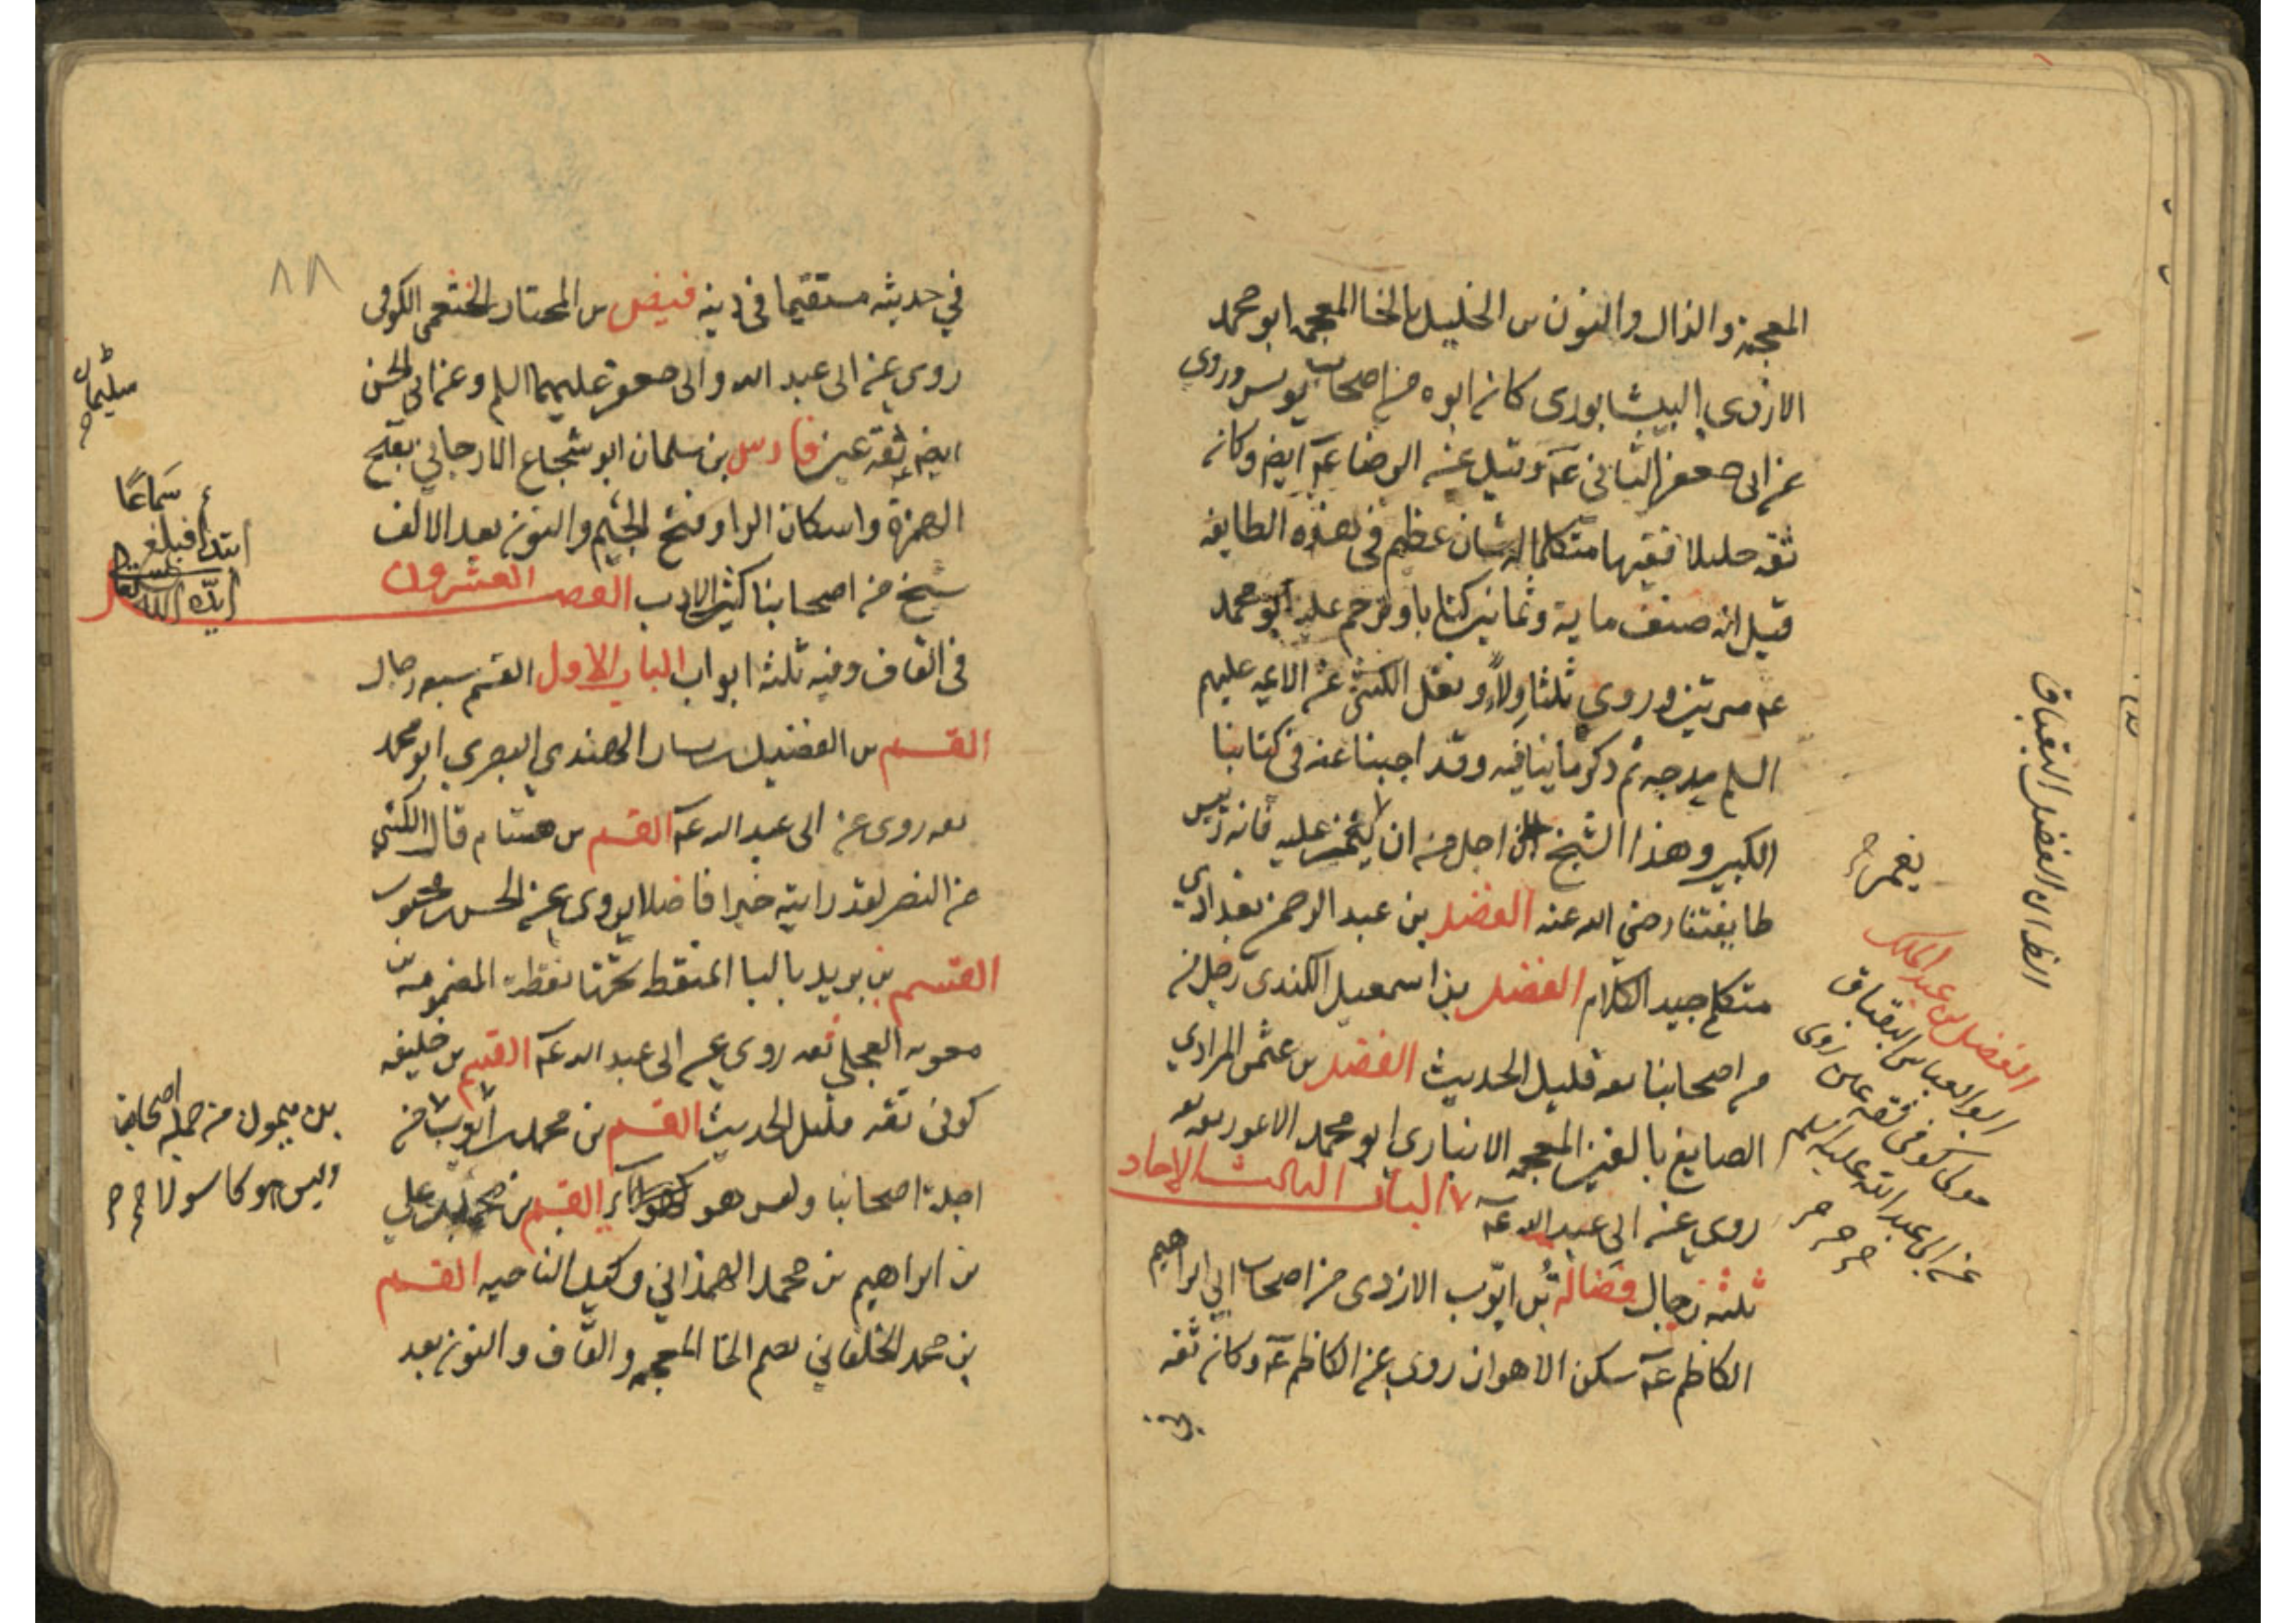 المعجمة والذال والنون بن الخليل بالخا المعجمه ابو محمد
الازدي النيشابوري كان ابوه من اصحاب يونس وروى
عن ابى جعفر الثاني عه وقيل عن الرضا عه ايضا وكان
ثقه جليلا فقيها متكلما له شان عظيم فى هذه الطايفه
قيل انه صنف ماية وثمانين كتابا وترحم عليه ابو محمد
عه مرتين وروي ثلثا ولاء ونقل الكشى عن الايمه عليهم
السلم مدحه ثم ذكر ما ينافيه وقد اجبنا عنه فى كتابنا
الكبير وهذا الشيخ اجل من ان يغمز عليه فانه رئيس
طايفتنا رضي الله عنه الفضل بن عبد الرحمن بغدادي
متكلم جيد الكلام الفضل بن اسمعيل الكندى رجل من
من اصحابنا ثقه قليل الحديث الفضل بن عثمن المرادي
الصايغ بالغين المعجمه الانباري ابو محمد الاعور ثقه ثقه
روي عن ابي عبد الله عه الباب الثالث الاحاد
ثلثه رجال فضالة بن ايّوب الازدى من اصحاب ابي ابراهيم
الكاظم عه سكن الاهواز روى عن الكاظم عه وكان ثقه
الظ انه الفضل البقباق
يغمز
الفضل بن عبد الملك
ابو العباس البقباق
مولى كوفى ثقه عين روى
عن ابى عبد الله عليه السلم
في حديثه مستقيما فى دينه فيض بن المختار الخثعمى الكوفى
روى عن ابى عبد الله وابى جعفر عليهما السلم وعن ابي الحسن
ايضا ثقة عين فارس بن سلمان ابو شجاع الارجاني بفتح
الهمزة واسكان الرا وفتح الجيم والنون بعد الالف
شيخ من اصحابنا كثير الادب الفصل العشرون
فى القاف وفيه ثلثه ابواب الباب الاول القسم سبعه رجال
القسم بن الفضيل بن يسار النهدي البصري ابو محمد
ثقه روى عن ابى عبد الله عه القسم بن هشام قال الكشي
عن النصر لقد رايته خيرا فاضلا يروى عن الحسن بن محبوب
القسم بن بريد بالبا المنقطه تحتها نقطه المضمومة بن
معويه العجلي ثقه روى عن ابى عبد الله عه القسم بن خليفه
كوفى ثقه قليل الحديث القسم بن محمد بن ايوب من
اجلة اصحابنا وليس هو القسم بن محمد بن علي
بن ابراهيم بن محمد الهمذاني وكيل الناحيه القسم
بن محمد الخلقاني بضم الخا المعجمه والقاف والنون بعد
٨٨
سليمان
سَماعًا
بن ميمون من جملة اصحابنا
وليس هو كاسولا